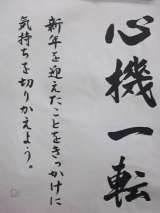 心機一転
新年を迎えたことをきっかけに
気持ちを切りかえよう。